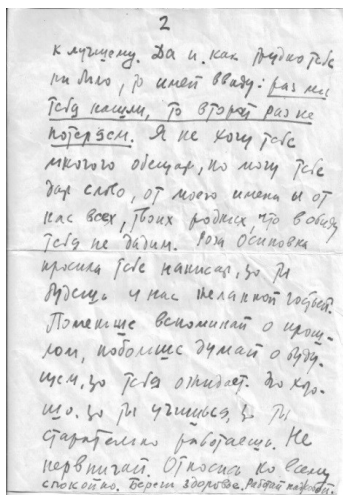 2
к лучшему. Да и как трудно тебе
ни было, то имей ввиду: раз мы
тебя нашли, то второй раз не
потеряем. Я не хочу тебе
многого обещать, но могу тебе
дать слово, от моего имени и от
нас всех, твоих родных, что в обиду
тебя не дадим. Роза Осиповна
просила тебе написать, что ты
будешь у нас желанной гостьей.
Поменьше вспоминай о прош-
лом, побольше думай о буду-
щем, что тебя ожидает. Это хоро-
шо, что ты учишься, что ты
старательно работаешь. Не
нервничай. Относись ко всему
спокойно. Береги здоровье. Работай